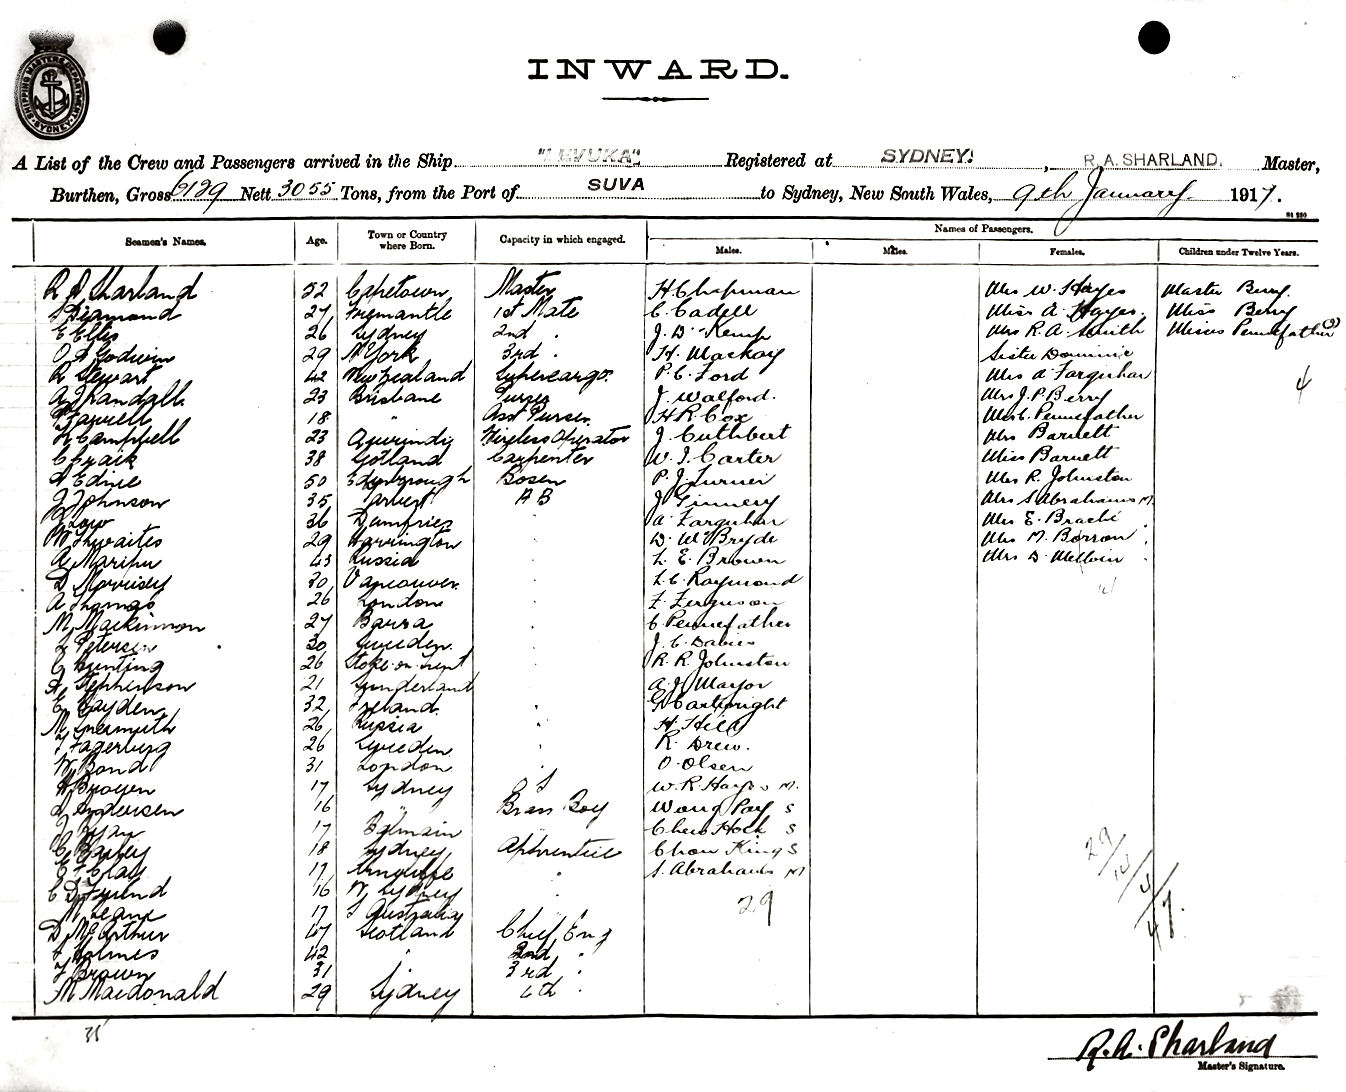 SHIPPING MASTERS DEPARTMENT SYDNEY
INWARD.
A List of the Crew and Passengers arrived in the Ship "LEVUKA" Registered at SYDNEY. , R. A. SHARLAND. Master,
Burthen, Gross 6129 Nett 3055 Tons, from the Port of SUVA to Sydney, New South Wales, 9th January 1917.
Seamen's Names. Age. Town or Country where Born. Capacity in which engaged. Names of Passengers.
Males. Males. Females. Children under Twelve Years.
R A Sharland 52 Capetown Master H. Chapman Mrs W. Hayes Master Berry
Diamond 27 Fremantle 1st Mate C. Cadell Miss A. Hayes. Miss Berry
E Ellis 26 Sydney 2nd " J. D. Kemp Mrs R. A. Smith Misses Pennefather (2)
O A Godwin 29 N York 3rd " H. Mackay Sister Dominic
R Stewart 42 New Zealand Supercargo. P. C. Ford Mrs A Farquhar 4
A J Randall 23 Brisbane Purser J. Walford. Mrs J. P. Berry
18 " Asst Purser H. R. Cox Mrs C. Pennefather
Campbell 23 Wireless Operator J. Cuthbert Mrs Barnett
38 Gotland Carpenter W. J. Carter Miss Barnett
50 Bosen P. J. Turner Mrs R. Johnston
J Johnson 35 A B J. Ginnery Mrs S. Abrahams M.
Low 36 Dumfries " A. Farquhar Mrs E. Braché "
M Thwaites 29 Warrington " D. McBryde Mrs M. Borron "
43 Russia " L. E. Brown Mrs D. "
30 Vancouver. " L. C. Raymond
A Thomas 26 London " F. Ferguson 14
M Mackinnon 27 Barra " C. Pennefather
Petersen 30 Sweden " J. C. Davies
C Bunting 26 Stoke on Trent " R. R. Johnston
A Stephenson 21 Sunderland " A. J. Mayor
E Hayden 32 Ireland " G. Cartwright
M 26 Russia " H. Hild
Fagerburg 26 Sweden " R. Drew.
W Bond 31 London " O. Olsen
H Brown 17 Sydney O S W. R. Hayes M.
Andersen 16 " Brass Boy Wong Pay S
Ryan 17 Balmain Chew Hock S
18 Sydney Apprentice Chow King S
17 " S. Abrahams M
16 N. Sydney "
M Leane 17 S Australia 29
D McArthur 47 Scotland Chief Eng
J Holmes 42 " 2nd "
J Brown 31 3rd "
M Macdonald 29 Sydney 4th "
29/14/4/47.
35
R. A. Sharland
Master's Signature.